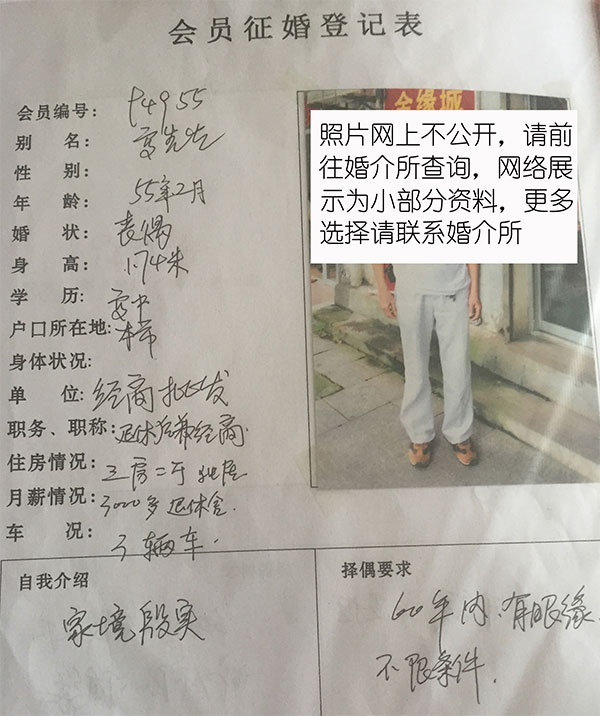 会员征婚登记表
会员编号: 4955
别 名: 高先生
性 别:
年 龄: 55年2月
婚 状: 丧偶
身 高: 1.74米
学 历: 高中
户口所在地: 本市
身体状况:
单 位: 经商批发
职务、职称: 退休后兼经商.
住房情况: 三房二厅
月薪情况: 3000多退休金.
车 况: 3辆车.
缘城
照片网上不公开，请前
往婚介所查询，网络展
示为小部分资料，更多
选择请联系婚介所
自我介绍
家境殷实
择偶要求
60年内,有眼缘,
不限条件.